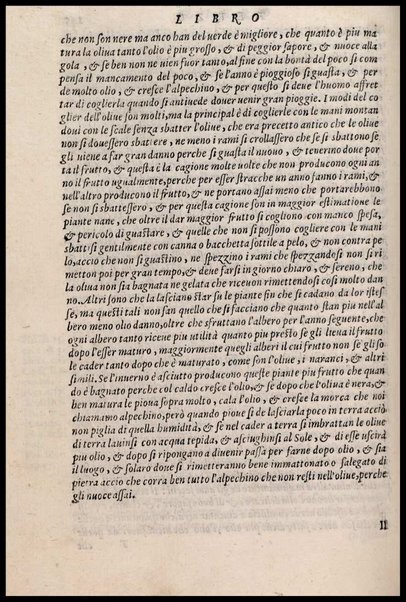 LIBRO
che non son nere ma anco han del uerde è migliore, che quanto è piu ma
tura la oliua tanto l'olio è piu grosso, & di peggior sapore, & nuoce alla
gola, & se ben non ne uien fuor tanto, al fine con la bontà del poco si com
pensa il mancamento del poco, & se l'anno è pioggioso si guasta, & per
de molto olio, & cresce l'alpechino, & per questo si deue l'huomo affret
tar di coglierla quando si antiuede douer uenir gran pioggie. I modi del co
glier dell'oliue son molti, ma la principal è di coglierle con le mani montan
doui con le scale senza sbatter l'oliue, che era precetto antico che le oliue
non si douessero sbatiere, ne meno i rami si crollassero che se si sbattono se
gli uiene a far gran danno perche si guasta il nuouo, & tenerino doue por
ta il frutto, & questa è la cagione molte uolte che non producono ogni an
no il frutto ugualmente, perche per esser stracche un anno fanno i rami, &
nell'altro producono il frutto, & ne portano assai meno che portarebbono
se non si sbattessero, & per questa cagione son in maggior estimatione le
piante nane, che oltre il dar maggior frutto si cogliono con manco spesa,
& pericolo di guastare, & quelle che non si possono cogliere con le mani
sbattisi gentilmente con canna o bacchetta sottile a pelo, & non contra pe
lo, accio che non si guastino, ne spezzino i rami che spezzandosi non si ri
metton poi per gran tempo, & deue farsi in giorno chiaro, & sereno, che
la oliua non sia bagnata ne gelata che riceuon rimettendosi cosi molto dan
no. Altri sono che la lasciano star su le piante fin che si cadano da lor istes
se, ma questi tali non san quello che si facciano che quanto stan piu nell'al
bero meno olio danno, oltre che sfruttano l'albero per l'anno seguente, che
ogni albero tanto riceue piu utilità quanto piu presto se gli lieua il frutto
dopo l'esser maturo, maggiormente quegli alberi il cui frutto non se gli so
le cader tanto dopo che è maturato, come son l'oliue, i naranci, & altri
simili. Se l'inuerno è asciutto producono queste piante piu frutto che quan
do è bagnato perche col caldo cresce l'olio, & se dopo che l'oliua è nera, &
ben matura le pioua sopra molto, cala l'olio, & cresce la morca che noi
chiamamo alpechino, però quando pioue si de lasciarla poco in terra acciò
non piglia di quella humidità, & se nel cader a terra si imbrattan le oliue
di terra lauinsi con acqua tepida, & asciughinsi al Sole, & di esse uscirà
piu olio, & dopo si ripongano a diuenir passa per farne dopo olio, & sia
il luogo, & solaro doue si rimetteranno bene immattonato o salegato di
pietra accio che corra ben tutto l'alpechino che non resti nell'oliue, perche
gli nuoce assai.
Il